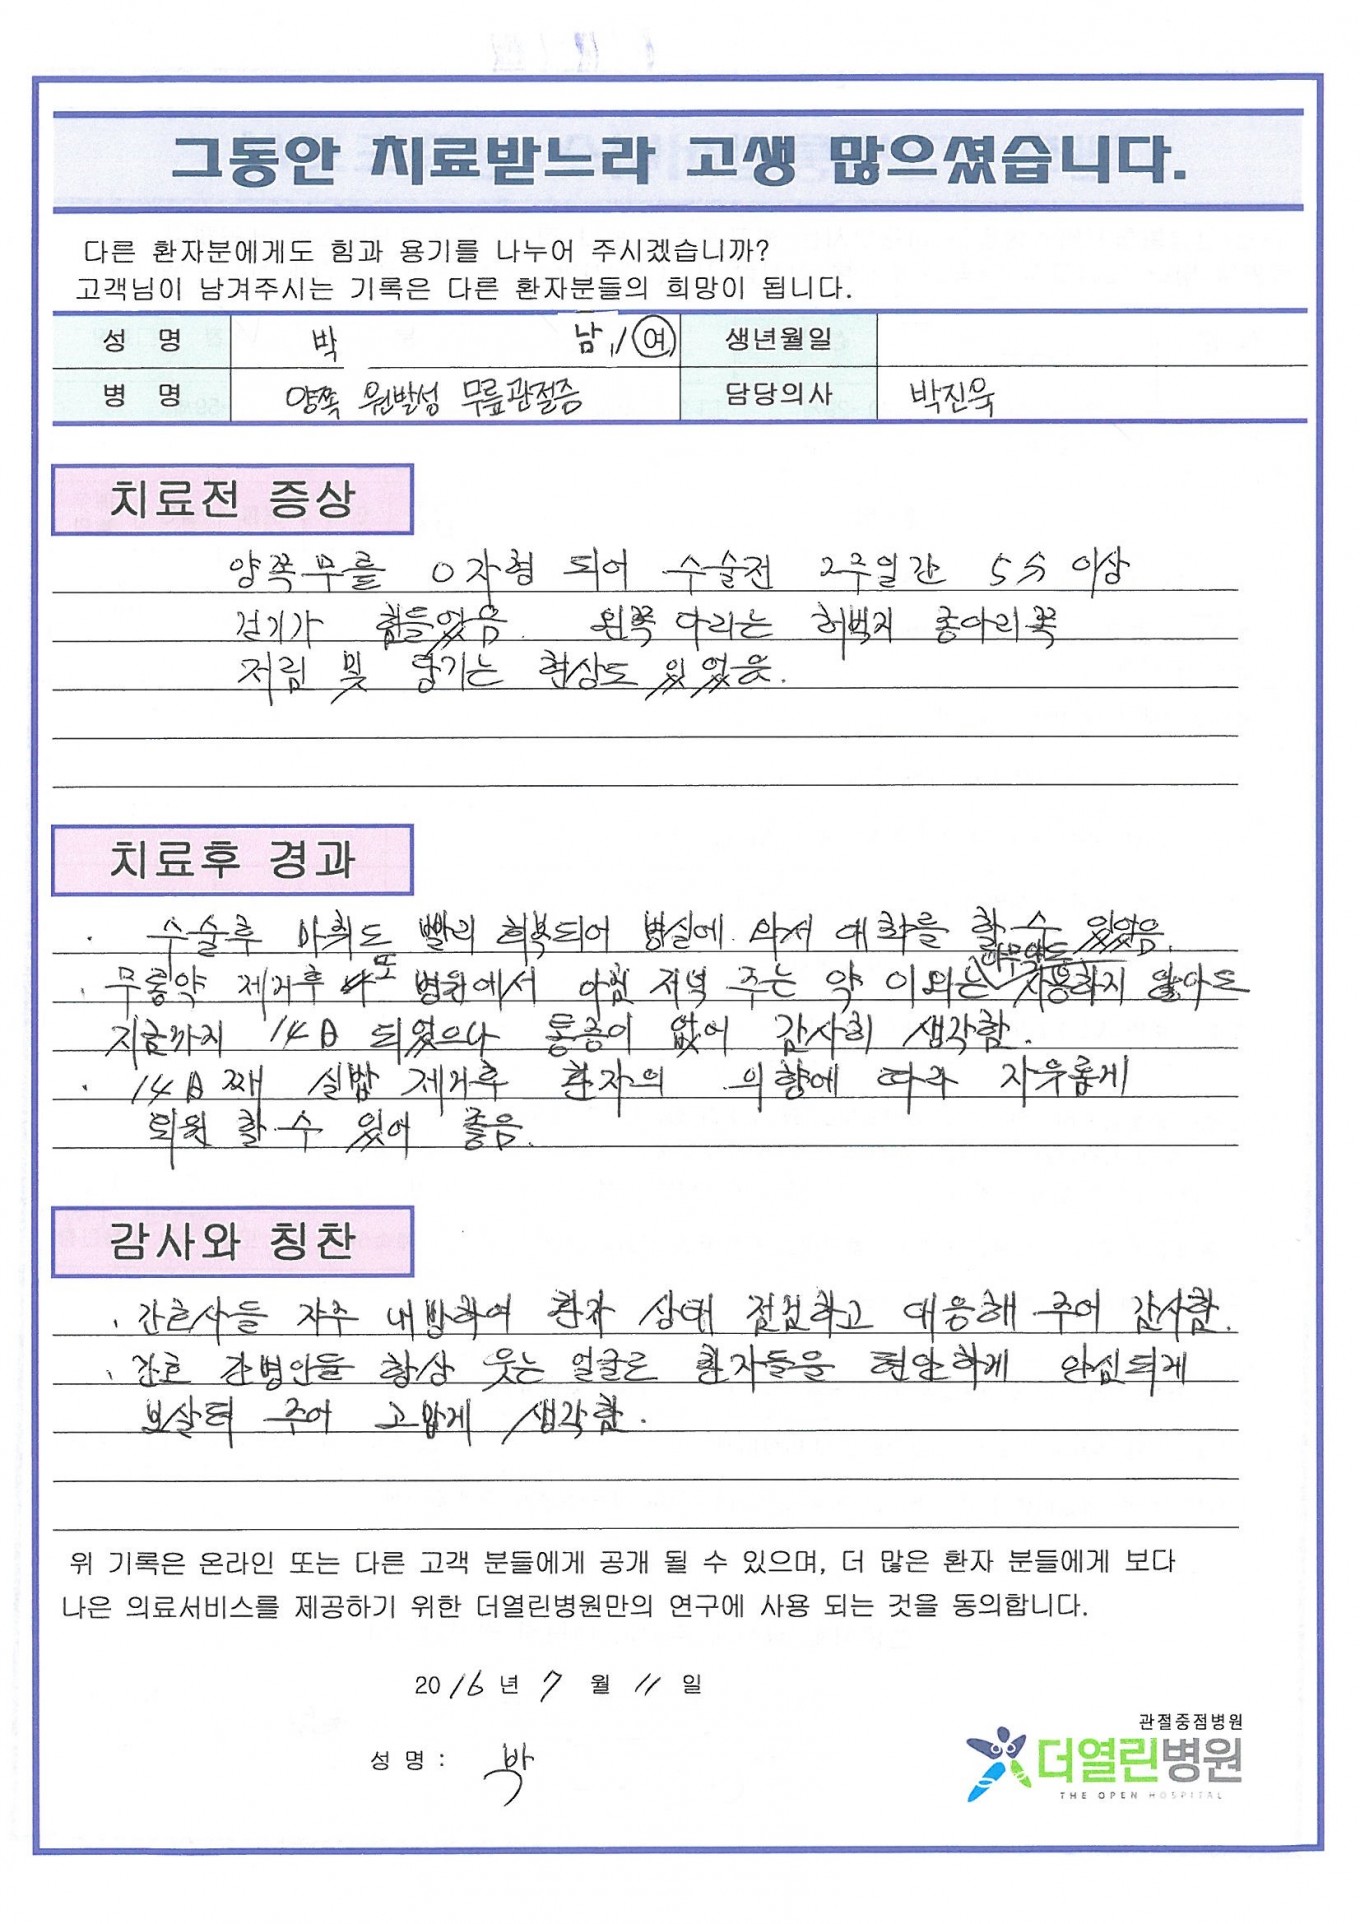 그동안 치료받느라 고생 많으셨습니다.
다른 환자분에게도 힘과 용기를 나누어 주시겠습니까?
고객님이 남겨주시는 기록은 다른 환자분들의 희망이 됩니다.
성 명 박 남 / 여 생년월일
병 명 양쪽 원발성 무릎관절증 담당의사 박진욱
치료전 증상
양쪽무릎 O자형 되어 수술전 2주일간 5分 이상
걷기가 힘들었음. 왼쪽 다리는 허벅지 종아리쪽
저림 및 당기는 현상도 있었음.
치료후 경과
· 수술후 마취도 빨리 회복되어 병실에 와서 대화를 할 수 있었음.
· 무통약 제거후 또 병원에서 아침 저녁 주는 약 이외는 아무약도 사용하지 않아도
지금까지 14日 되었으나 통증이 없어 감사히 생각함.
· 14日째 실밥 제거후 환자의 의향에 따라 자유롭게
퇴원 할 수 있어 좋음.
감사와 칭찬
· 간호사들 자주 내방하여 환자 상태 점검하고 대응해 주어 감사함.
· 간호 간병인들 항상 웃는 얼굴로 환자들을 편안하게 안심되게
보살펴 주어 고맙게 생각함.
위 기록은 온라인 또는 다른 고객 분들에게 공개 될 수 있으며, 더 많은 환자 분들에게 보다
나은 의료서비스를 제공하기 위한 더열린병원만의 연구에 사용 되는 것을 동의합니다.
2016 년 7 월 11 일
성 명 : 박
관절중점병원
더열린병원
THE OPEN HOSPITAL